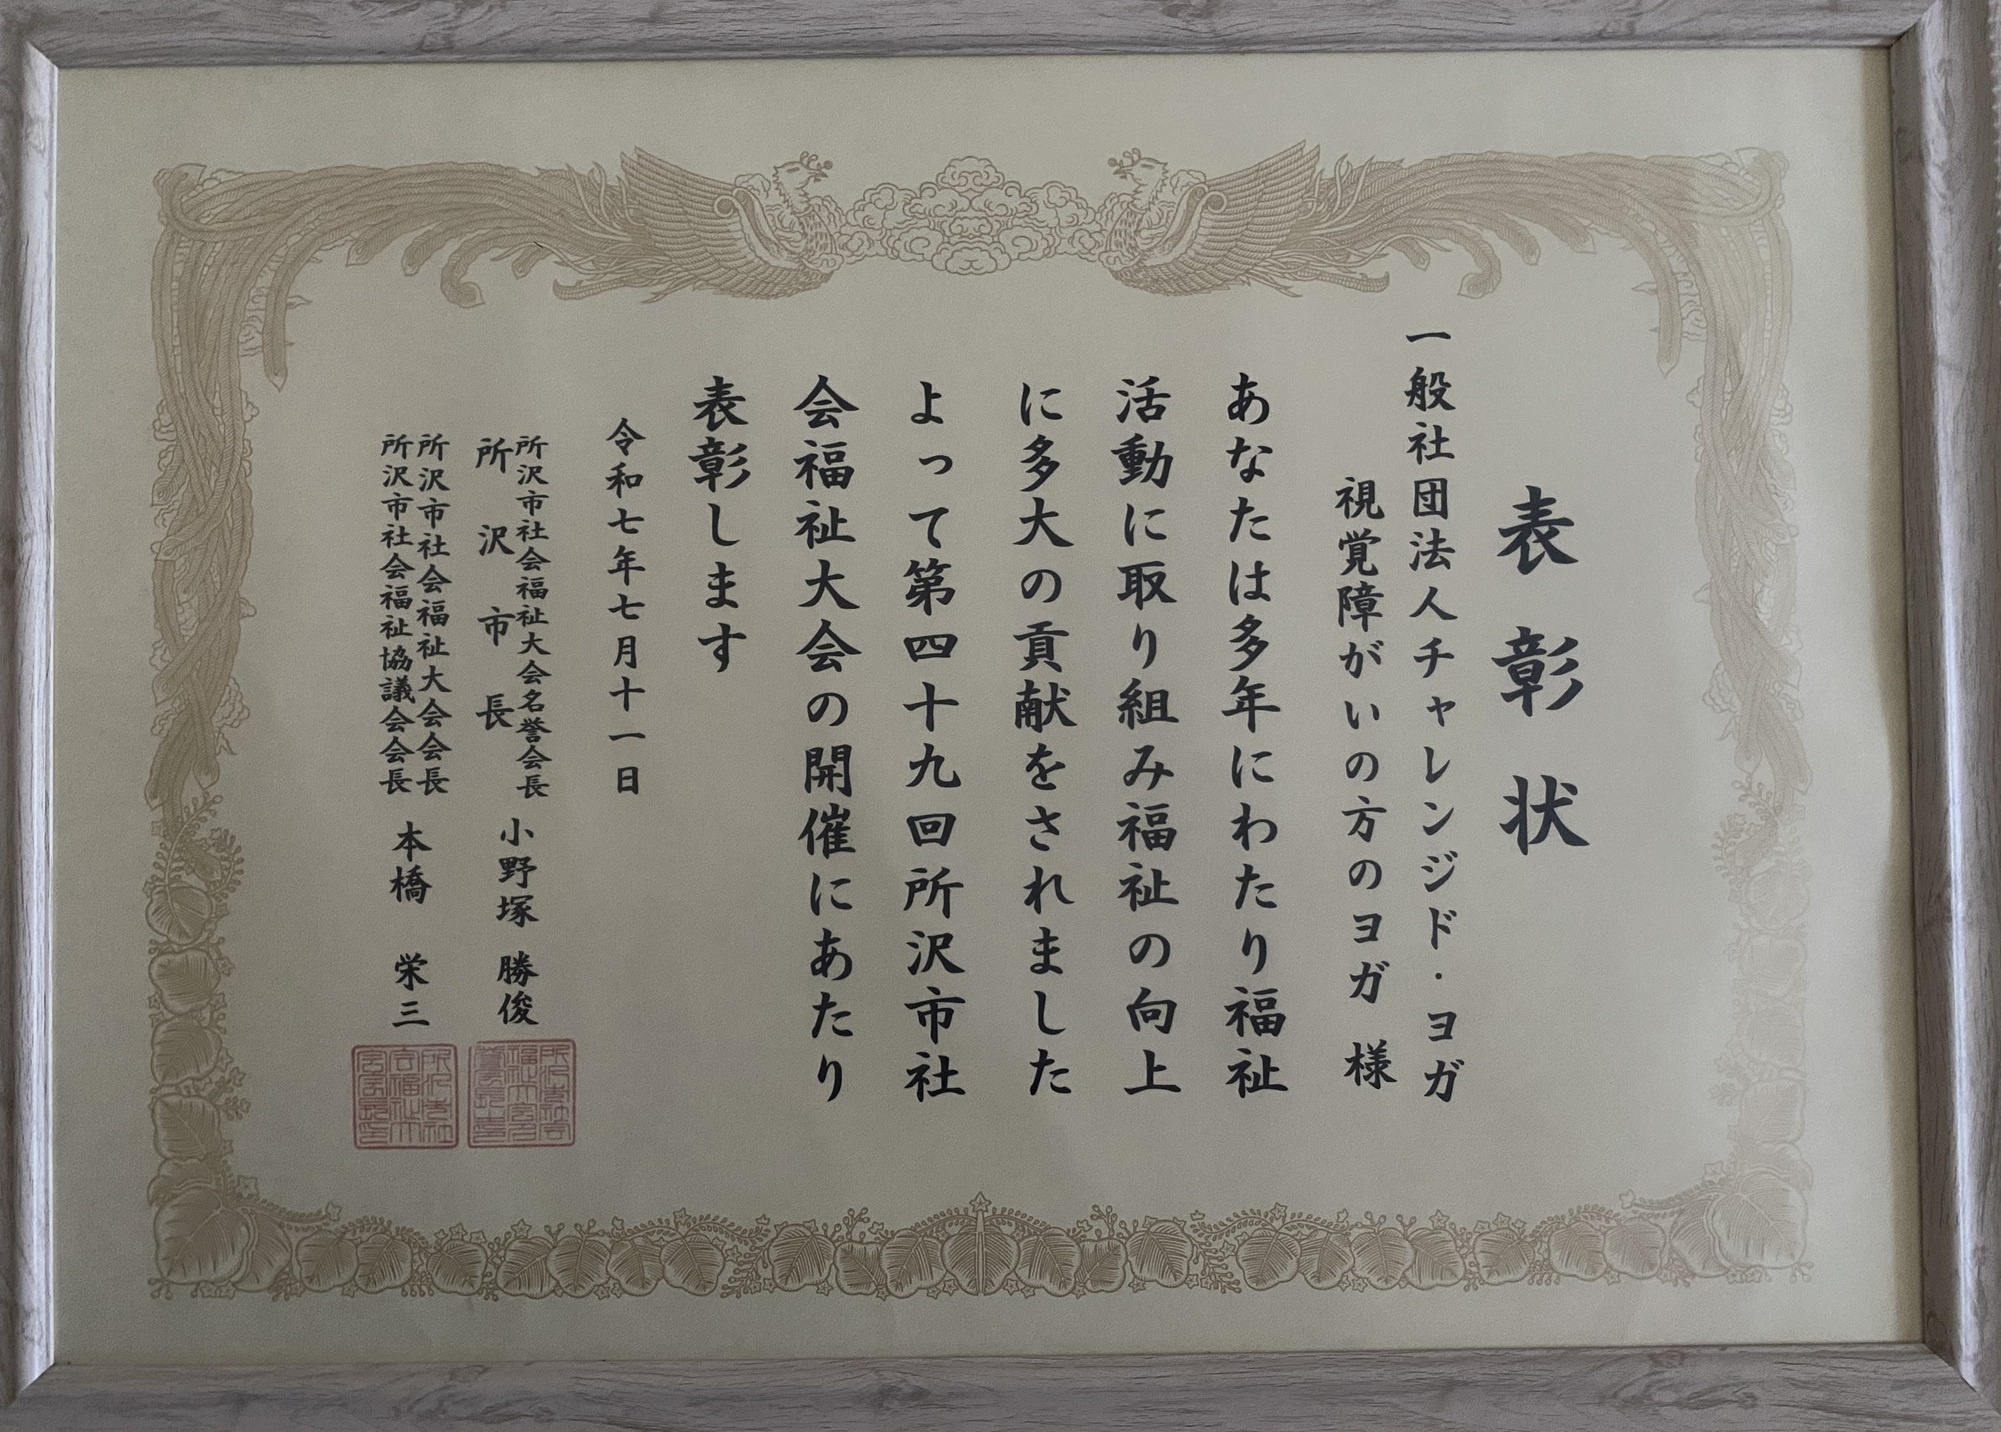 表彰状
一般社団法人チャレンジド・ヨガ
視覚障がいの方のヨガ 様
あなたは多年にわたり福祉
活動に取り組み福祉の向上
に多大の貢献をされました
よって第四十九回所沢市社
会福祉大会の開催にあたり
表彰します
令和七年七月十一日
所沢市社会福祉大会名誉会長
所沢市長 小野塚 勝俊
所沢市社会福祉大会会長
所沢市社会福祉協議会会長 本橋 栄三